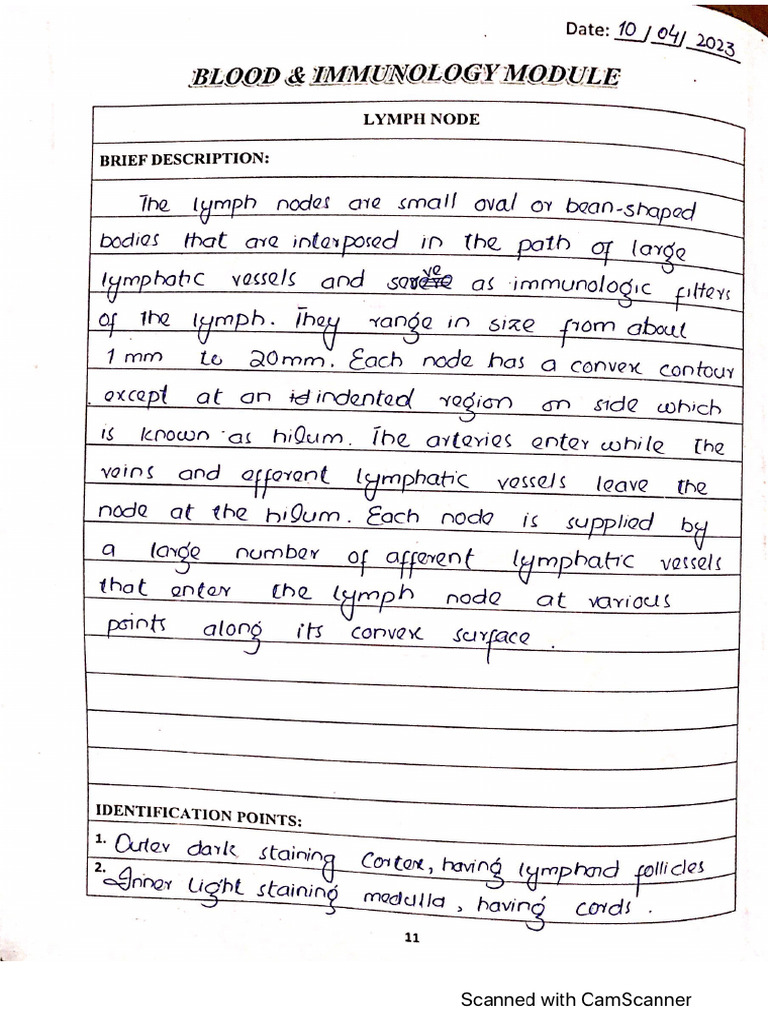 Date: 10/04/2023
BLOOD & IMMUNOLOGY MODULE
LYMPH NODE
BRIEF DESCRIPTION:
The lymph nodes are small oval or bean-shaped
bodies that are interposed in the path of large
lymphatic vessels and serve as immunologic filters
of the lymph. They range in size from about
1 mm to 20mm. Each node has a convex contour
except at an indented region on side which
is known as hilum. The arteries enter while the
veins and efferent lymphatic vessels leave the
node at the hilum. Each node is supplied by
a large number of afferent lymphatic vessels
that enter the lymph node at various
points along its convex surface.
IDENTIFICATION POINTS:
1. Outer dark staining Cortex, having lymphoid follicles
2. Inner light staining medulla, having cords.
11
Scanned with CamScanner